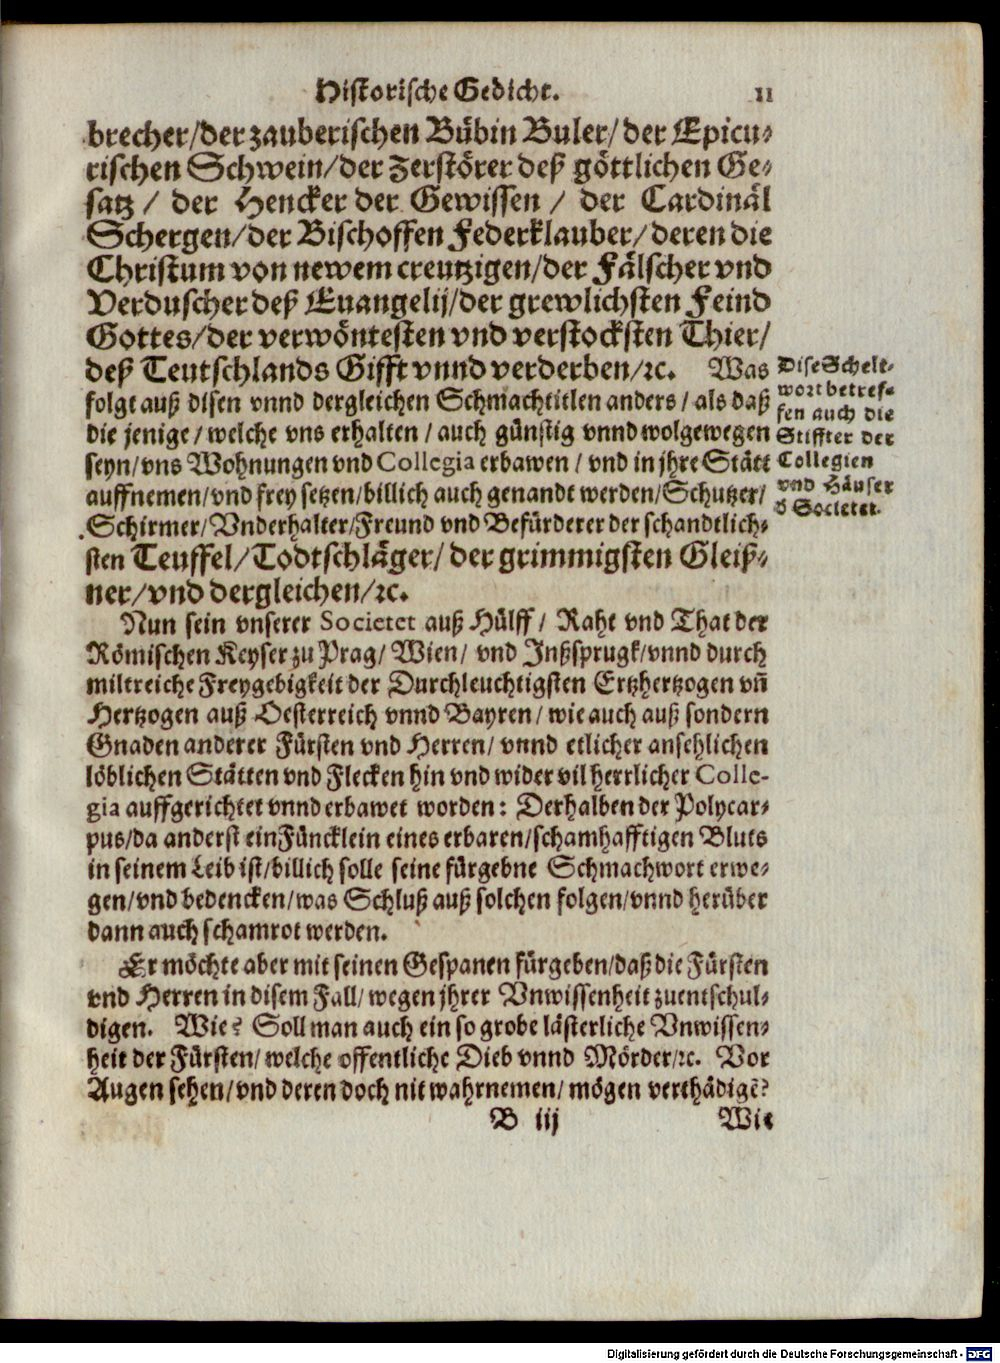 Historische Gedicht. 11
brecher/der zauberischen Bübin Buler/der Epicu-
rischen Schwein/der Zerstörer deß göttlichen Ge-
satz / der Hencker der Gewissen / der Cardinäl
Schergen/der Bischoffen Federklauber/deren die
Christum von newem creutzigen/der Fälscher vnd
Verduscher deß Euangelij/der grewlichsten Feind
Gottes/der verwöntesten vnd verstocksten Thier/
deß Teutschlands Gifft vnnd verderben/ꝛc. Was
folgt auß disen vnnd dergleichen Schmachtitlen anders/als daß
die jenige/welche vns erhalten/auch günstig vnnd wolgewegen
seyn/vns Wohnungen vnd Collegia erbawen/vnd in jhre Stätt
auffnemen/vnd frey setzen/billich auch genandt werden/Schutzer/
Schirmer/Vnderhalter/Freund vnd Befürderer der schandtlich-
sten Teuffel/Todtschläger/der grimmigsten Gleiß-
ner/vnd dergleichen/ꝛc.
Dise Schelt-
wort betref-
fen auch die
Stiffter der
Collegien
vnd Häuser
d Societet.
Nun sein vnserer Societet auß Hülff/ Raht vnd That der
Römischen Keyser zu Prag/ Wien/ vnd Jnßsprugk/vnnd durch
miltreiche Freygebigkeit der Durchleuchtigsten Ertzhertzogen vn̄
Hertzogen auß Oesterreich vnnd Bayren/wie auch auß sondern
Gnaden anderer Fürsten vnd Herren/ vnnd etlicher ansehlichen
löblichen Stätten vnd Flecken hin vnd wider vil herrlicher Colle-
gia auffgerichtet vnnd erbawet worden: Derhalben der Polycar-
pus/da anderst ein Füncklein eines erbaren/schamhafftigen Bluts
in seinem Leib ist/billich solle seine fürgebne Schmachwort erwe-
gen/vnd bedencken/was Schluß auß solchen folgen/vnnd herüber
dann auch schamrot werden.
Er möchte aber mit seinen Gespanen fürgeben/daß die Fürsten
vnd Herren in disem Fall/wegen jhrer Vnwissenheit zuentschul-
digen. Wie? Soll man auch ein so grobe lästerliche Vnwissen-
heit der Fürsten/welche offentliche Dieb vnnd Mörder/ꝛc. Vor
Augen sehen/vnd deren doch nit wahrnemen/mögen verthädigē?
B iij Wie
Digitalisierung gefördert durch die Deutsche Forschungsgemeinschaft - DFG